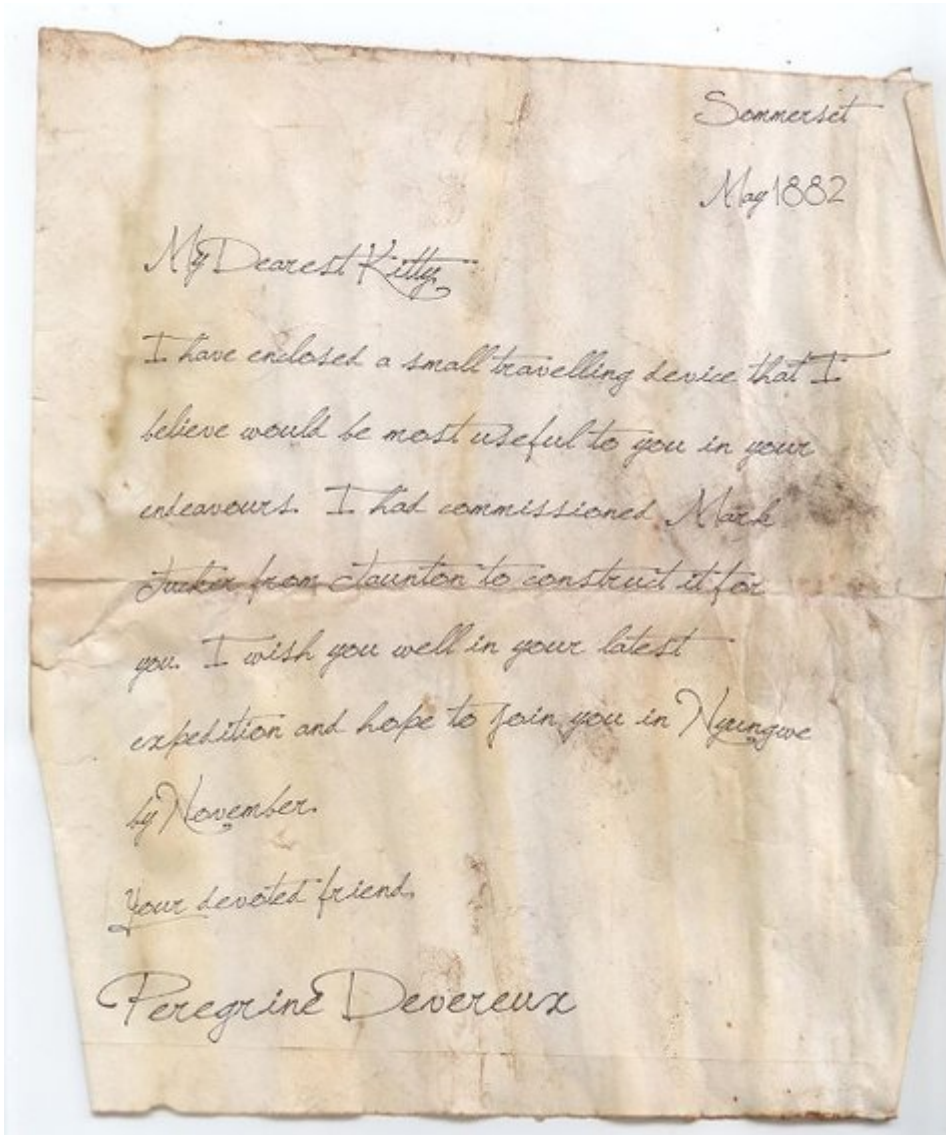 Sommerset
May 1882
My Dearest Kitty,
I have enclosed a small travelling device that I
believe would be most useful to you in your
endeavours. I had commissioned Mark
Tucker from Taunton to construct it for
you. I wish you well in your latest
expedition and hope to join you in Nyungwe
by November.
Your devoted friend,
Peregrine Devereux